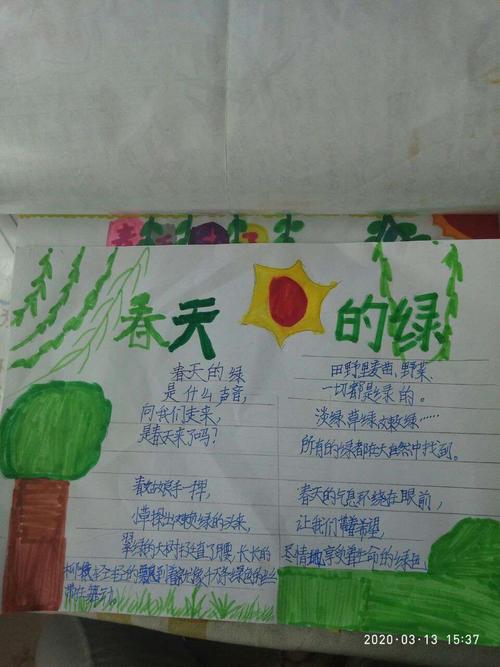 春天 的绿
春天的绿
是什么声音,
向我们走来,
是春天来了吗?
春姑娘手一挥,
小草探出嫩绿的头来,
翠绿的大树挺直了腰,长长的
田野里麦苗、野菜,
一切都是绿的。
淡绿、草绿、嫩绿……
所有的绿都在大自然中找到。
春天的气息环绕在眼前,
让我们带着希望,
尽情地享受着生命的绿色
2020·03·13 15:37